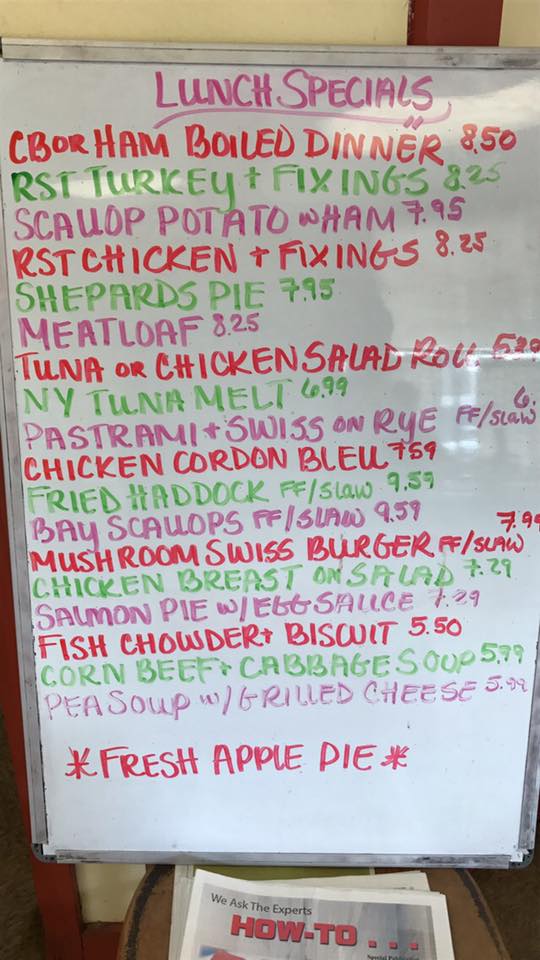 LUNCH SPECIALS
CB OR HAM BOILED DINNER 8.50
RST TURKEY + FIXINGS 8.25
SCALLOP POTATO W HAM 7.95
RST CHICKEN + FIXINGS 8.25
SHEPARDS PIE 7.95
MEATLOAF 8.25
TUNA OR CHICKEN SALAD ROLL
NY TUNA MELT 6.99
PASTRAMI + SWISS ON RYE FF/SLAW 6.
CHICKEN CORDON BLEU 7.59
FRIED HADDOCK FF/SLAW 9.59
BAY SCALLOPS FF/SLAW 9.59
MUSHROOM SWISS BURGER FF/SLAW 7.99
CHICKEN BREAST ON SALAD 7.29
SALMON PIE W/EGG SAUCE 7.29
FISH CHOWDER + BISCUIT 5.50
CORN BEEF + CABBAGE SOUP 5.99
PEA SOUP W/GRILLED CHEESE 5.99
*FRESH APPLE PIE*
We Ask The Experts
HOW-TO . . .
Special